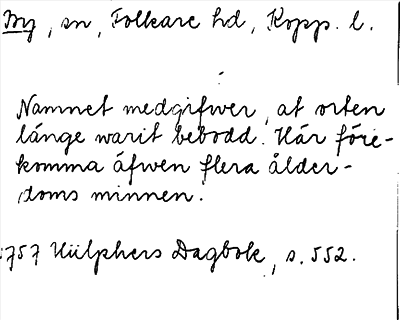 By, sn, Folkare hd, Kopp. l.
Namnet medgifwer, at orten
länge warit bebodd. Här före-
komma äfwen flera ålder-
doms minnen.
1757 Hülphers Dagbok, s. 552.